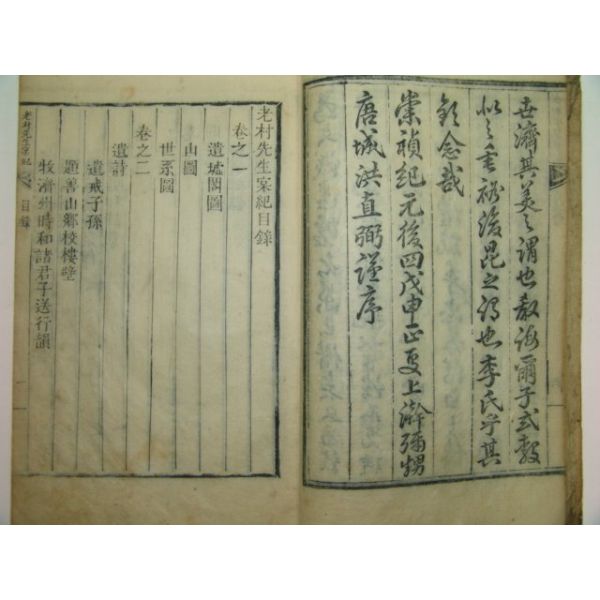 世濟其美之謂也敎誨爾子式穀
似之垂裕後昆之謂也李氏乎其
欽念哉
崇禎紀元後四戊申正夏上澣彌甥
唐城洪直弼謹序
老村先生實紀目錄
卷之一
遺墟閣圖
山圖
世系圖
卷之二
遺詩
遺戒子孫
題善山鄕校樓壁
牧濟州時和諸君子送行韻
老村先生實紀
目錄